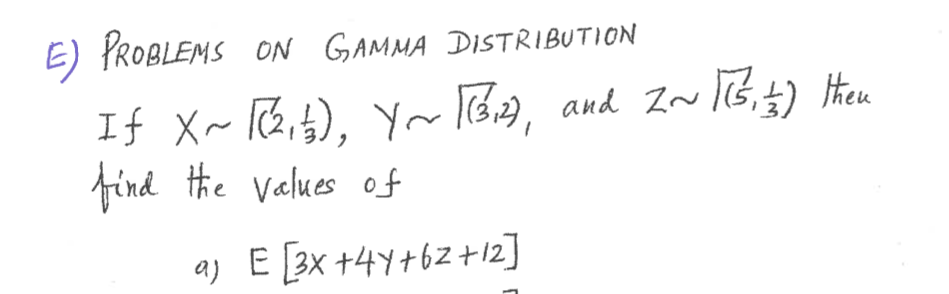 E) PROBLEMS ON GAMMA DISTRIBUTION
If X ~ Γ(2, 1/3), Y ~ Γ(3,2), and Z ~ Γ(5, 1/3) then
find the values of
a) E [3X +4Y+6Z +12]